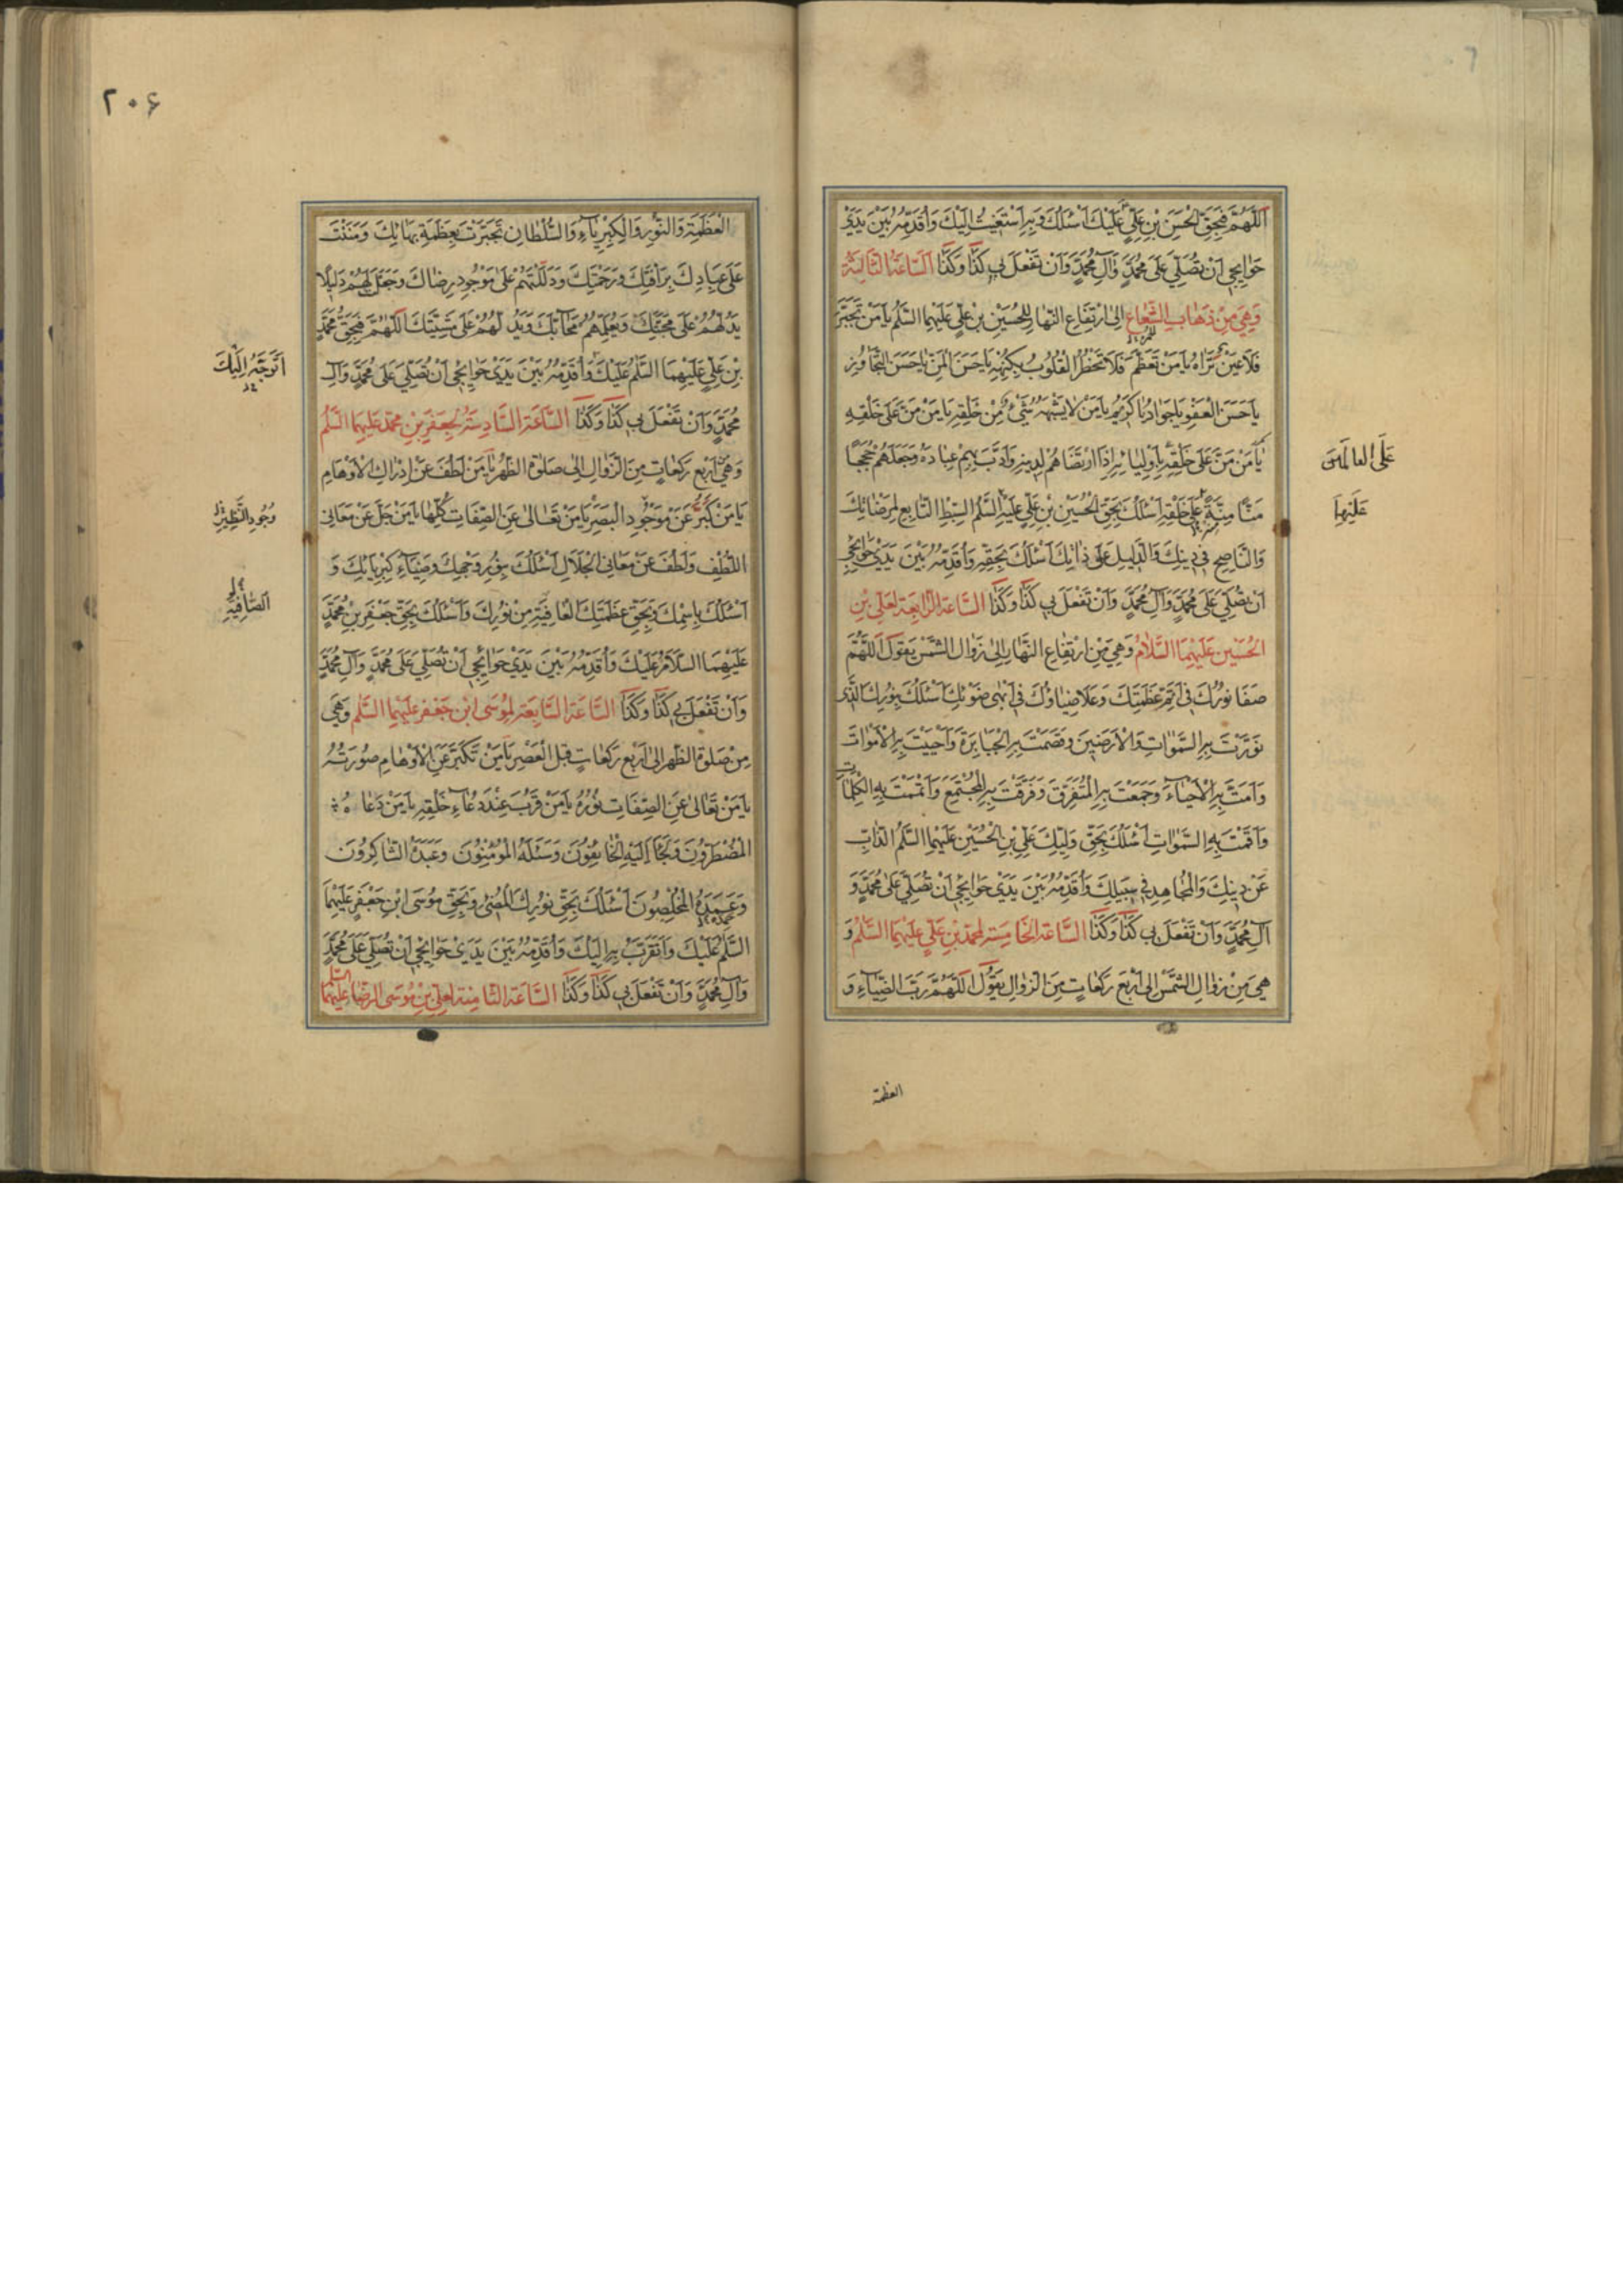 اَللّٰهُمَّ فَبِحَقِّ الْحَسَنِ بْنِ عَلِيٍّ عَلَيْكَ اَسْئَلُكَ وَبِهِ اَسْتَغيثُ اِلَيْكَ وَاُقَدِّمُهُ بَيْنَ يَدَيْ
حَوٰائِجي اَنْ تُصَلِّيَ عَلىٰ مُحَمَّدٍ وَآلِ مُحَمَّدٍ وَاَنْ تَفْعَلَ بي كَذٰا وَكَذٰا اَلسّٰاعَةُ الثّٰالِثَةُ
وَهِيَ مِنْ ذَهٰابِ الشُّعٰاعِ اِلىٰ ارْتِفٰاعِ النَّهٰارِ لِلْحُسَيْنِ بْنِ عَلِيٍّ عَلَيْهِمَا السَّلٰمُ يٰا مَنْ تَجَبَّرَ
فَلٰا عَيْنٌ تَرٰاهُ يٰا مَنْ تَعَظَّمَ فَلٰا تَخْطُرُ الْقُلُوبُ بِكُنْهِهِ يٰا حَسَنَ الْمَنِّ يٰا حَسَنَ التَّجٰاوُزِ
يٰا حَسَنَ الْعَفْوِ يٰا جَوٰادُ يٰا كَريمُ يٰا مَنْ لٰا يُشْبِهُهُ شَيْءٌ مِنْ خَلْقِهِ يٰا مَنْ مَنَّ عَلىٰ خَلْقِهِ
يٰا مَنْ مَنَّ عَلىٰ خَلْقِهِ بِاَوْلِيٰائِهِ اِذَا ارْتَضٰاهُمْ لِدينِهِ وَاَدَّبَ بِهِمْ عِبٰادَهُ وَجَعَلَهُمْ حُجَجًا
عَلَى الْعٰالَمينَ
مَنًّا مِنْهُ عَلىٰ خَلْقِهِ اَسْئَلُكَ بِحَقِّ الْحُسَيْنِ بْنِ عَلِيٍّ عَلَيْهِ السَّلٰمُ السِّبْطِ التّٰابِعِ لِمَرْضٰاتِكَ
وَالنّٰاصِحِ في دينِكَ وَالدَّليلِ عَلىٰ ذٰاتِكَ اَسْئَلُكَ بِحَقِّهِ وَاُقَدِّمُهُ بَيْنَ يَدَيْ حَوٰائِجي
اَنْ تُصَلِّيَ عَلىٰ مُحَمَّدٍ وَآلِ مُحَمَّدٍ وَاَنْ تَفْعَلَ بي كَذٰا وَكَذٰا السّٰاعَةُ الرّٰابِعَةُ لِعَلِيِّ بْنِ
الْحُسَيْنِ عَلَيْهِمَا السَّلٰامُ وَهِيَ مِنِ ارْتِفٰاعِ النَّهٰارِ اِلىٰ زَوٰالِ الشَّمْسِ يَقُولُ اَللّٰهُمَّ
صَفٰا نُورُكَ في اَتَمِّ عَظَمَتِكَ وَعَلٰا ضِيٰاؤُكَ في اَبْهىٰ ضَوْئِكَ اَسْئَلُكَ بِنُورِكَ الَّذي
نَوَّرْتَ بِهِ السَّمٰوٰاتِ وَالْاَرَضينَ وَقَصَمْتَ بِهِ الْجَبٰابِرَةَ وَاَحْيَيْتَ بِهِ الْاَمْوٰاتَ
وَاَمَتَّ بِهِ الْاَحْيٰاءَ وَجَمَعْتَ بِهِ الْمُتَفَرِّقَ وَفَرَّقْتَ بِهِ الْمُجْتَمِعَ وَاَتْمَمْتَ بِهِ الْكَلِمٰاتِ
وَاَقَمْتَ بِهِ السَّمٰوٰاتِ اَسْئَلُكَ بِحَقِّ وَلِيِّكَ عَلِيِّ بْنِ الْحُسَيْنِ عَلَيْهِمَا السَّلٰمُ الذّٰابِّ
عَنْ دينِكَ وَالْمُجٰاهِدِ في سَبيلِكَ وَاُقَدِّمُهُ بَيْنَ يَدَيْ حَوٰائِجي اَنْ تُصَلِّيَ عَلىٰ مُحَمَّدٍ وَ
آلِ مُحَمَّدٍ وَاَنْ تَفْعَلَ بي كَذٰا وَكَذٰا السّٰاعَةُ الْخٰامِسَةُ لِمُحَمَّدِ بْنِ عَلِيٍّ عَلَيْهِمَا السَّلٰمُ وَ
هِيَ مِنْ زَوٰالِ الشَّمْسِ اِلىٰ اَرْبَعِ رَكَعٰاتٍ مِنَ الزَّوٰالِ يَقُولُ اَللّٰهُمَّ رَبَّ الضِّيٰاءِ وَ
العظمة
٢٠۶
الْعَظَمَةِ وَالنُّورِ وَالْكِبْرِيٰاءِ وَالسُّلْطٰانِ تَجَبَّرْتَ بِعَظَمَةِ بَهٰائِكَ وَمَنَنْتَ
عَلىٰ عِبٰادِكَ بِرَأْفَتِكَ وَرَحْمَتِكَ وَدَلَلْتَهُمْ عَلىٰ مَوْجُودِ رِضٰاكَ وَجَعَلْتَ لَهُمْ دَليلًا
يَدُلُّهُمْ عَلىٰ مَحَبَّتِكَ وَيُعَلِّمُهُمْ مَحٰابَّكَ وَيَدُلُّهُمْ عَلىٰ مَشِيَّتِكَ اَللّٰهُمَّ فَبِحَقِّ مُحَمَّدِ
بْنِ عَلِيٍّ عَلَيْهِمَا السَّلٰمُ عَلَيْكَ وَاُقَدِّمُهُ بَيْنَ يَدَيْ حَوٰائِجي اَنْ تُصَلِّيَ عَلىٰ مُحَمَّدٍ وَآلِ
اَتَوَجَّهُ اِلَيْكَ
مُحَمَّدٍ وَاَنْ تَفْعَلَ بي كَذٰا وَكَذٰا السّٰاعَةُ السّٰادِسَةُ لِجَعْفَرِ بْنِ مُحَمَّدٍ عَلَيْهِمَا السَّلٰمُ
وَهِيَ اَرْبَعُ رَكَعٰاتٍ مِنَ الزَّوٰالِ اِلىٰ صَلٰوةِ الظُّهْرِ يٰا مَنْ لَطُفَ عَنْ اِدْرٰاكِ الْاَوْهٰامِ
يٰا مَنْ كَبُرَ عَنْ مَوْجُودِ الْبَصَرِ يٰا مَنْ تَعٰالىٰ عَنِ الصِّفٰاتِ كُلِّهٰا يٰا مَنْ جَلَّ عَنْ مَعٰاني
اللُّطْفِ وَلَطُفَ عَنْ مَعٰاني الْجَلٰالِ اَسْئَلُكَ بِنُورِ وَجْهِكَ وَضِيٰاءِ كِبْرِيٰائِكَ وَ
اَسْئَلُكَ بِاسْمِكَ وَبِحَقِّ عَظَمَتِكَ الْعٰافِيَةِ مِنْ نُورِكَ وَاَسْئَلُكَ بِحَقِّ جَعْفَرِ بْنِ مُحَمَّدٍ
الصّٰافِيَةِ
عَلَيْهِمَا السَّلٰامُ عَلَيْكَ وَاُقَدِّمُهُ بَيْنَ يَدَيْ حَوٰائِجي اَنْ تُصَلِّيَ عَلىٰ مُحَمَّدٍ وَآلِ مُحَمَّدٍ
وَاَنْ تَفْعَلَ بي كَذٰا وَكَذٰا السّٰاعَةُ السّٰابِعَةُ لِمُوسَى ابْنِ جَعْفَرٍ عَلَيْهِمَا السَّلٰمُ وَهِيَ
مِنْ صَلٰوةِ الظُّهْرِ اِلىٰ اَرْبَعِ رَكَعٰاتٍ قَبْلَ الْعَصْرِ يٰا مَنْ تَكَبَّرَ عَنِ الْاَوْهٰامِ صُورَتُهُ
يٰا مَنْ تَعٰالىٰ عَنِ الصِّفٰاتِ نُورُهُ يٰا مَنْ قَرُبَ عِنْدَ دُعٰاءِ خَلْقِهِ يٰا مَنْ دَعٰاهُ
الْمُضْطَرُّونَ وَلَجَأَ اِلَيْهِ الْخٰائِفُونَ وَسَئَلَهُ الْمُؤْمِنُونَ وَعَبَدَهُ الشّٰاكِرُونَ
وَحَمِدَهُ الْمُخْلِصُونَ اَسْئَلُكَ بِحَقِّ نُورِكَ الْمُضيءِ وَبِحَقِّ مُوسَى ابْنِ جَعْفَرٍ عَلَيْهِمَا
السَّلٰمُ عَلَيْكَ وَاَتَقَرَّبُ بِهِ اِلَيْكَ وَاُقَدِّمُهُ بَيْنَ يَدَيْ حَوٰائِجي اَنْ تُصَلِّيَ عَلىٰ مُحَمَّدٍ
وَآلِ مُحَمَّدٍ وَاَنْ تَفْعَلَ بي كَذٰا وَكَذٰا السّٰاعَةُ الثّٰامِنَةُ لِعَلِيِّ بْنِ مُوسَى الرِّضٰا عَلَيْهِمَا السَّلٰمُ